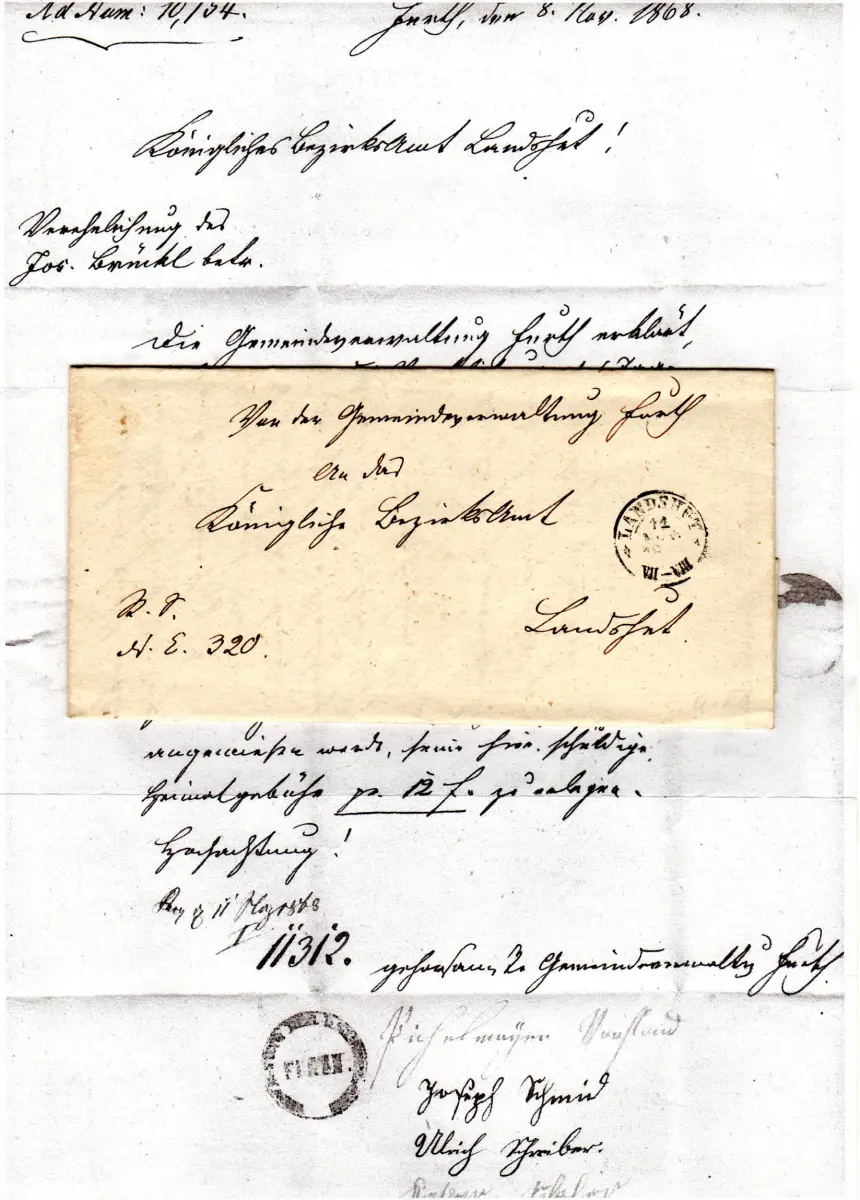 Ad Num: 10,/34.
Furth, den 8. Nov. 1868.
Königliches Bezirksamt Landshut!
Verehelichung des
Jos. Brückl betr.
Die Gemeindeverwaltung Furth erklärt,
Von der Gemeindeverwaltung Furth
An das
Königliche Bezirksamt
LANDSHUT
11
NOV
VII-VIII
R. S.
N. E. 320.
Landshut
angewiesen werde, seine hier. schuldige
Heimatgebühr pr. 12 f. zu erlegen.
Hochachtung!
11 Nov 1868
11312.
gehorsamste Gemeindeverwaltg Furth.
Pichelmayer Vorstand
FURTH.
Joseph Schmid
Ulrich Schreiber.